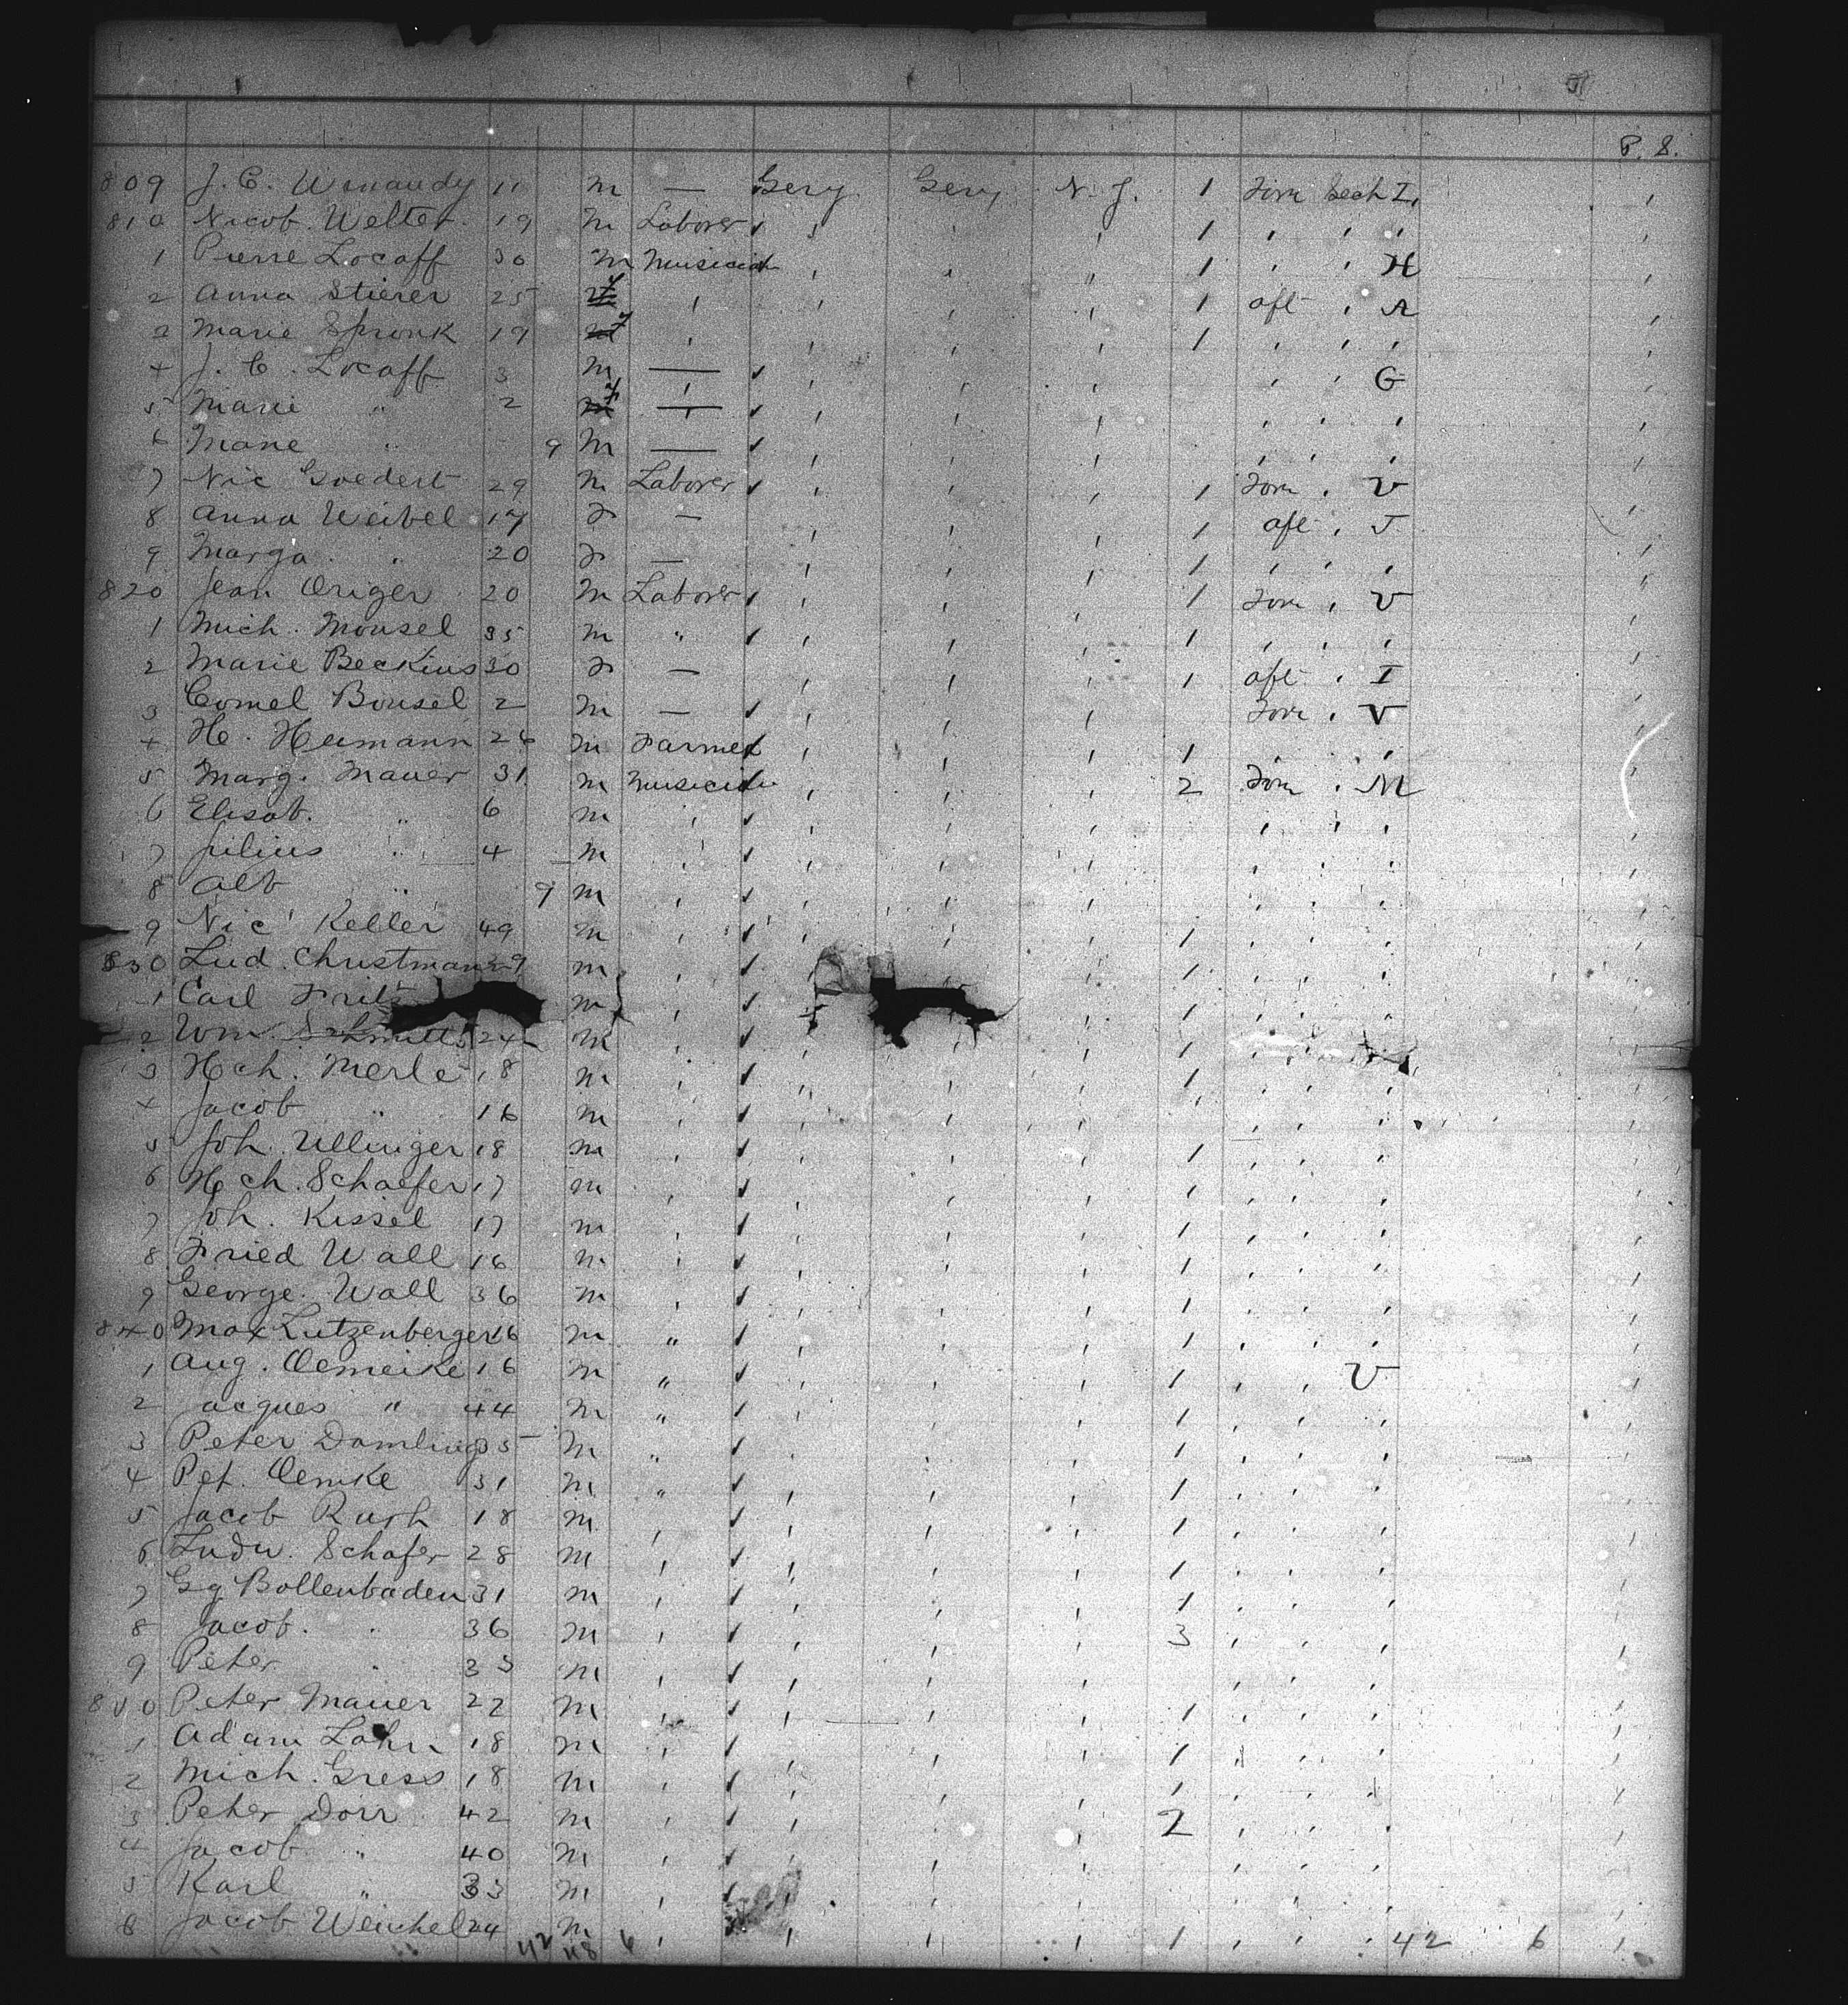 P. 8.
809 J. C. Wmandy 11 m — Gery Gery N. J. 1 Forw Sech I,
810 Nicob. Welter 19 m Laborer 1
1 Pierre Locaff 30 m Musician 1 H
2 Anna Stierer 25 f 1 aft A
3 Marie Spronk 19 f 1
4 J. C. Locaff 3 m — G
5 Marie " 2 f —
6 Marie " 9 m —
7 Nic Goedert 29 m Laborer 1 Forw V
8 Anna Weibel 17 F — 1 aft J
9 Marga " 20 F — 1
820 Jean Origer 20 m Laborer 1 Forw V
1 Mich. Mousel 35 m " 1
2 Marie Beckius 30 F — 1 aft I
3 Cornel Bousel 2 m — Forw V
4 He. Heimann 26 m Farmer 1
5 Marg. Mauer 31 m Musician 2 Forw M
6 Elisab. " 6 m
7 Julius " 4 m
8 Alb " 9 m
9 Nic Keller 49 m 1
830 Lud. Christmann 29 m 1
1 Carl Fritz m 1
2 Wm. Schmitts 24 m 1
3 Hch. Merle 18 m 1
4 Jacob " 16 m
5 Joh. Ullinger 18 m 1
6 Hch. Schaefer 17 m 1
7 Joh. Kissel 17 m 1
8 Fried Wall 16 m 1
9 George. Wall 36 m 1
840 Max Lutzenberger 16 m " 1
1 Aug. Oemeike 16 m " 1 V
2 acques " 44 m " 1
3 Peter Domling 35 m " 1
4 Pet. Oemke 31 m " 1
5 Jacob Rush 18 m 1
6 Ludw. Schafer 28 m 1
7 Gg Bollenbaden 31 m 1
8 Jacob. " 36 m 3
9 Peter " 33 m
850 Peter Mauer 22 m 1
1 Adam Lahn 18 m 1
2 Mich. Gress 18 m 1
3 Peter Dorr 42 m 2
4 Jacob " 40 m
5 Karl " 33 m
6 Jacob Weichel 24 m 1 42 6
42 48 6